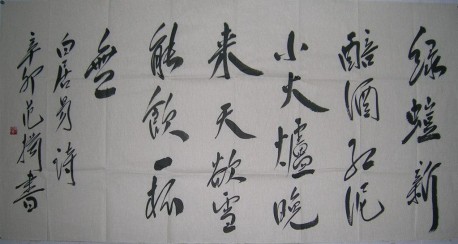 绿螘新
醅酒红泥
小火爐晚
来天欲雪
能飲一杯
無
白居易诗
辛卯范書